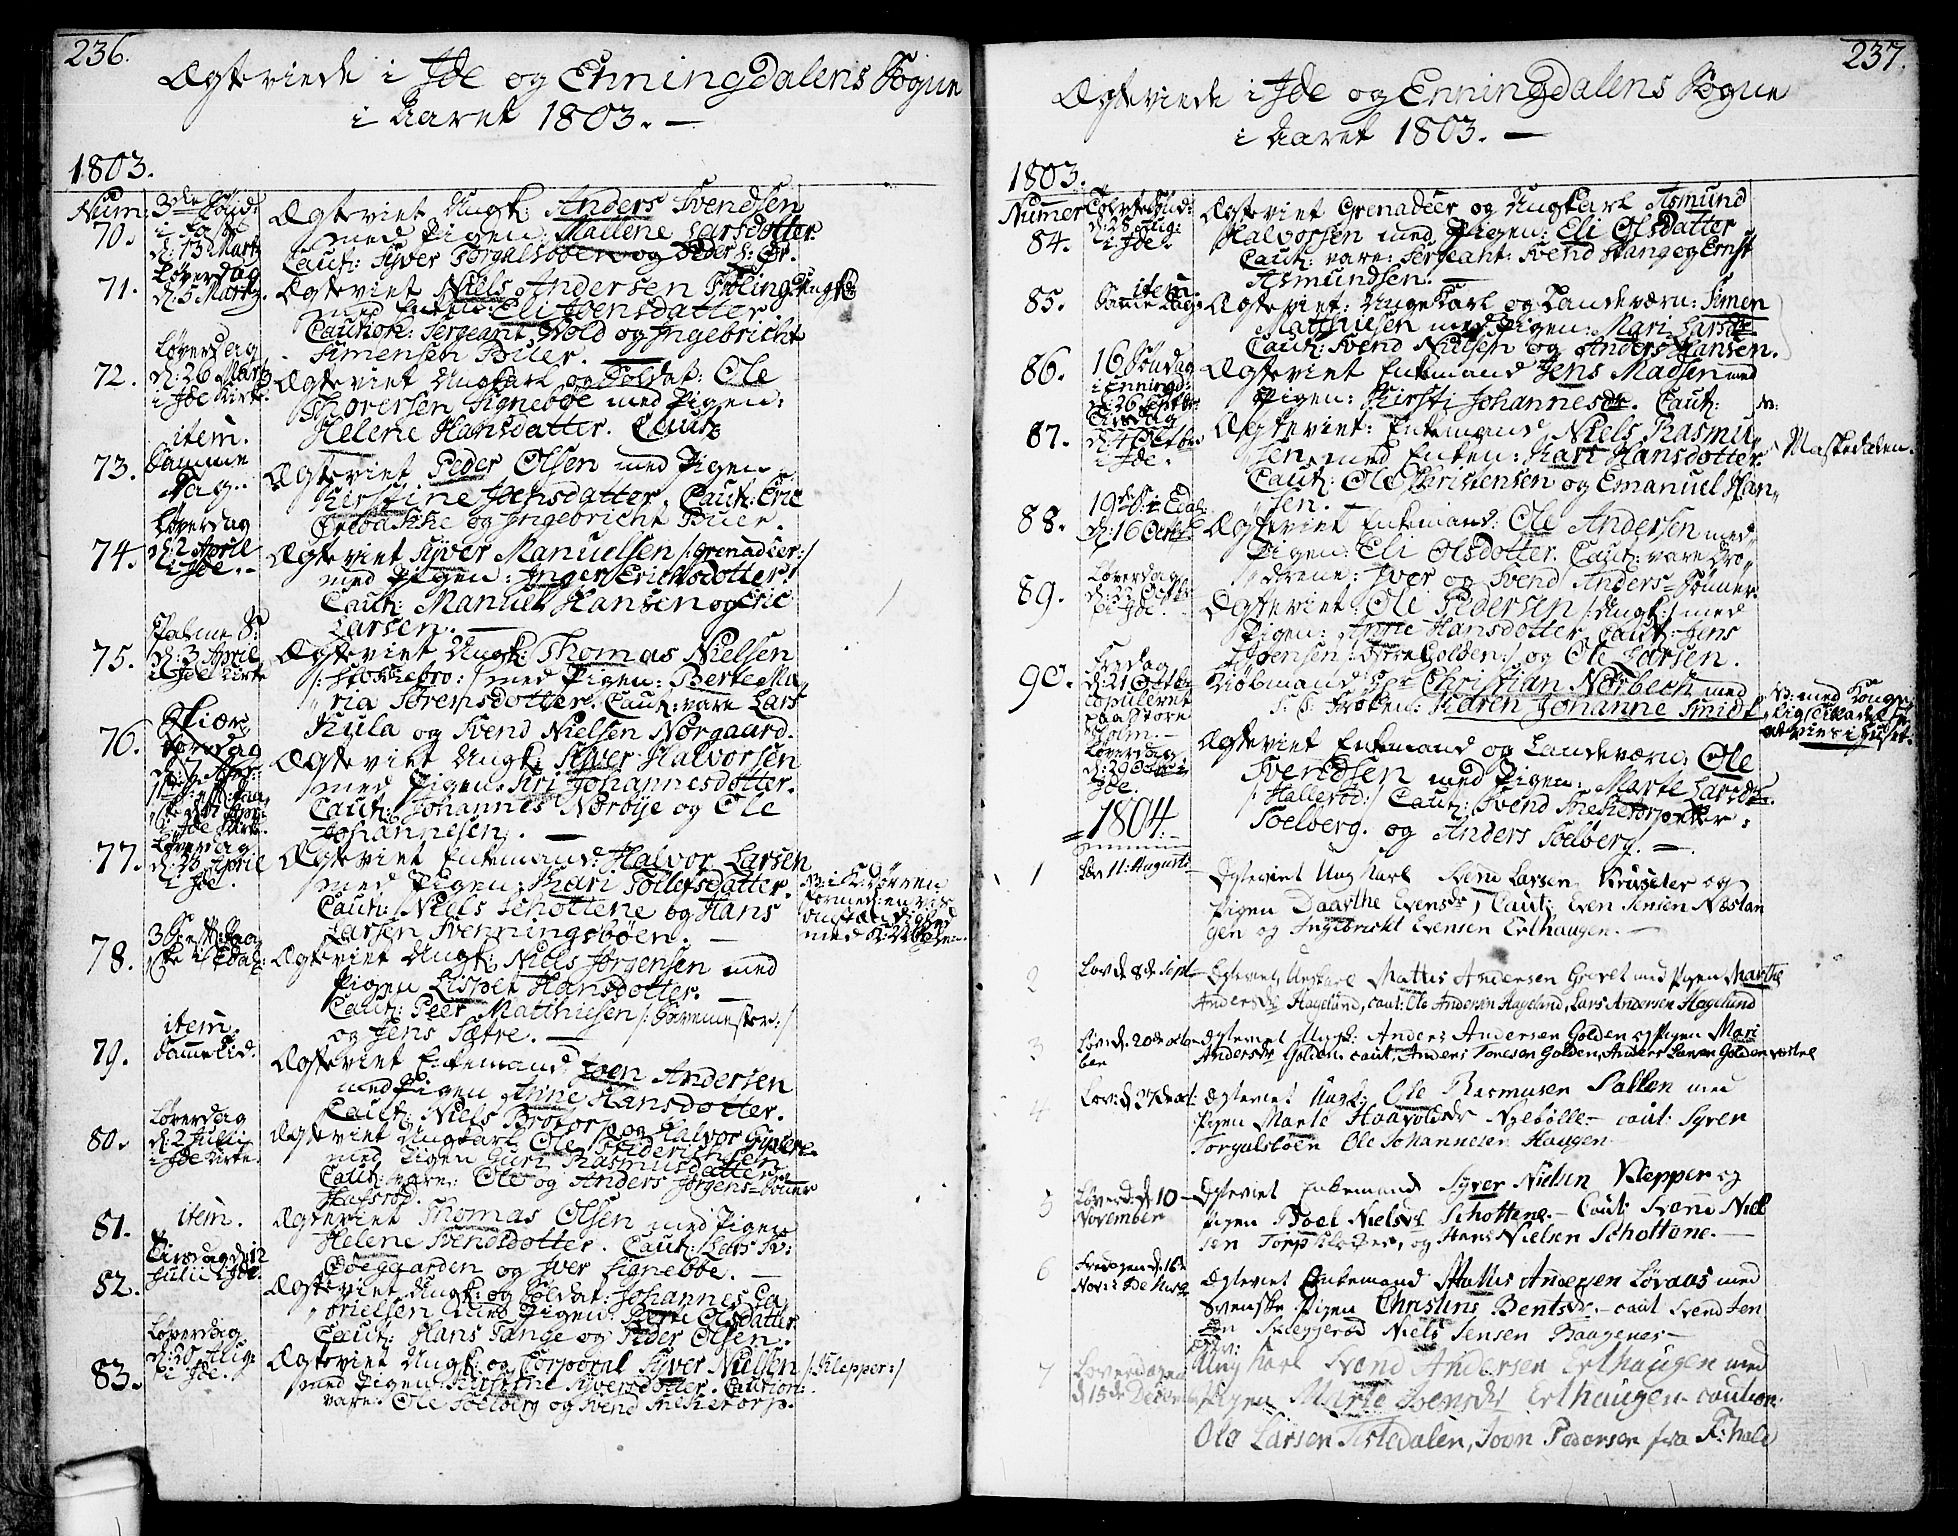 236.
Ægteviede i Ide og Enningdalens Sogne
i Aaret 1803. —
1803.
Num: 3die Sønd:
70. i Faste
d: 13 Martz
Ægteviet Ungk: Anders Svendsen
med Pigen: Mallene Larsdotter.
Caut: Syver Torgalsbøen og Peder S: Ør.
71. Løverdag
d: 5 Martz.
Ægteviet Niels Andersen
med Enken Eli Joensdatter.
Caution: Sergeant Wold og Ingebricht
Simensen Buer.
72. Løverdag
d: 26 Martz
i Ide Kirke.
Ægteviet Ungkarl og Soldat: Ole
Thoversen Signebøe med Pigen:
Helene Hansdatter. Caut:
73. item.
Samme
Dag.
Ægteviet Peder Olsen med Pigen
Kirstine Joensdatter. Caut: Eric
Orebakke og Ingebricht Buer.
74. Løverdag
d: 2 April
i Ide.
Ægteviet Syver Manuelsen /: Grenadeer:/
med Pigen: Inger Erichsdotter.
Caut: Manuel Hansen og Eric
Larsen. —
75. Palme S:
d: 3 April
i Ide Kirke
Ægteviet Ungk: Thomas Nielsen
/: Stokkebro:/ med Pigen: Berte Ma-
ria Sørensdotter. Caut: vare Lars
Kula og Svend Nielsen Nørgaard.
76. Skiær-
torsdag
i Ide Kirke.
Ægteviet Ungk: Syver Halvorsen
med Pigen: Kri Johannesdotter.
Caut: Johannes Nørøye og Ole
Johannesen. —
77. Løverdag
d: 23 April
i Ide.
Ægteviet Enkemand: Halvor Larsen
med Pigen: Kari Tollefsdatter.
Caut: Niels Schottene og Hans
Larsen Svenningsbøen. —
78.
Ægteviet Ungk: Niels Jørgensen med
Pigen Lisbet Hansdotter.
Caut: Peer Matthiesen
og Jens Sætre. —
79. item.
Samme Tid.
Ægteviet Enkemand Joen Andersen
med Pigen Anne Hansdotter.
Caut: Niels Brotorp og Halvor
80. Løverdag
d: 2 Julii
i Ide Kirke.
Ægteviet Ungkarl Ole Friderichsen
med Pigen Guri Rasmusdatter
Caut: vare: Ole og Anders Jørgens-sønner
Hafsrød.
81. item.
Ægteviet Thomas Olsen med Pigen
Helene Svendsdotter. Caut: Lars Sv:
Bøegaarden og Iver Signebøe. —
82. Tirsdag d: 12
Julii i Ide.
Ægteviet Ungk: og Soldat: Johannes Ga-
brielsen med Pigen Berte Olsdatter
Caut: Hans Tange og Peder Olsen.
83. Løverdag
d: 20 Aug:
i Ide.
Ægteviet Ungk: og Corporal Syver Nielsen /: Klepper:/
med Pigen: Kirstine Syversdotter. Caution:
vare: Ole Soelberg og Svend Fredetorp.
237.
Ægteviede i Ide og Enningdalens Sogne
i Aaret 1803. —
1803.
Numer
84. d: 28 Aug:
i Ide.
Ægteviet Grenadeer og Ungkarl Asmund
Halvorsen med Pigen: Eli Olsdatter
Caut: vare: Sergeant: Svend Stang og Ernst
Asmundsen. —
85. item.
Samme Dag:
Ægteviet: Ungekarl og Landeværn: Simen
Matthiesen med Pigen: Mari Larsdr.
Caut: Svend Nielsen og Anders Hansen.
86. 16 Søndag
i Enningd:
d: 26 Septbr
Ægteviet Enkemand Jens Madsen med
Pigen: Kirsti Johannesdr. Caut:
87. Tirsdag
d: 4 Octbr
i Ide.
Ægteviet: Enkemand Niels Rasmu-
sen, med Enken: Kari Hansdotter.
Caut: Ole Christensen og Emanuel Han-
sen. —
88.
d: 16 Octbr
Ægteviet Enkemand: Ole Andersen med
Pigen: Eli Olsdotter. Caut: vare Brø-
drene: Iver og Svend Anders-Sønner.
89. Løverdag
d: 22 Octbr
i Ide.
Ægteviet Ole Pedersen /: Ungk:/ med
Pigen: Anne Hansdotter. Caut: Jens
Joensen /: Østre Golden:/ og Ole Larsen.
90. Fredag
d: 21 Octbr
Copuleret
paa Store
Holm. —
Kiøbmand Hr Christian Nørbech med
Frøken: Karen Johanne Smidt
NB: med Konge-
at vies i Huset.
Løverdag
d: 29 Octbr i
Ide.
Ægteviet Enkemand og Landeværn: Ole
Svendsen med Pigen: Marte Larsdr.
/: Hallerød:/ Caut: Svend
Soelberg. og Anders Soelberg. —
1804.
1 Løv 11: Augusti
Egteviet Ung Karl Svend Larsen Krusæter og
Pigen Daarthe Evensdr, Caut: Even Jensen Næstan
gen og Ingebricht Evensen Erlhaugen. —
2 Løv d. 8de Sept
Egteviet Ungkarl Mattis Andersen Grevet med Pigen Marthe
Andersdr Hagelund, caut: Ole Andersen Hageland, Lars Andersen Hagelund
3 Løv: d. 20de octo-
ber
Egteviet Ungk: Anders Andersen Golden og Pigen Mari
Andersdr Golden. caut: Anders Tonesen Golden, Anders Larsen Golden
4 Løv: d. 27de oct:
Egteviet Ungk: Ole Rasmusen Sallen med
Pigen Marte Haavoldsdr Nyebølle — caut: Syren
Torgulsbøen Ole Johannesen Haugen
5 Løverd: d. 10
November
Egteviet Enkemand Syver Nielsen Klepper og
Pigen Boel Nielsdr Schottene. — Caut: Svend Niel
sen Torp, og Hans Nielsen Schottene. —
6 Fredagen d. 16de
Nov: i Ide Kirke
Egteviet Enkemand Mattis Andersen Løvaas med
Svenske Pigen Christine Bentsdr. caut Svend Jen
sen Skieggerød Niels Jensen Baagenes —
7 Løverdagen
d 15de Decbr
Ung Karl Svend Andersen Erlhaugen med
Pigen Marte Svensdr Erlhaugen — caution:
Ole Larsen Tistedalen, Joon Pedersen fra F:hald